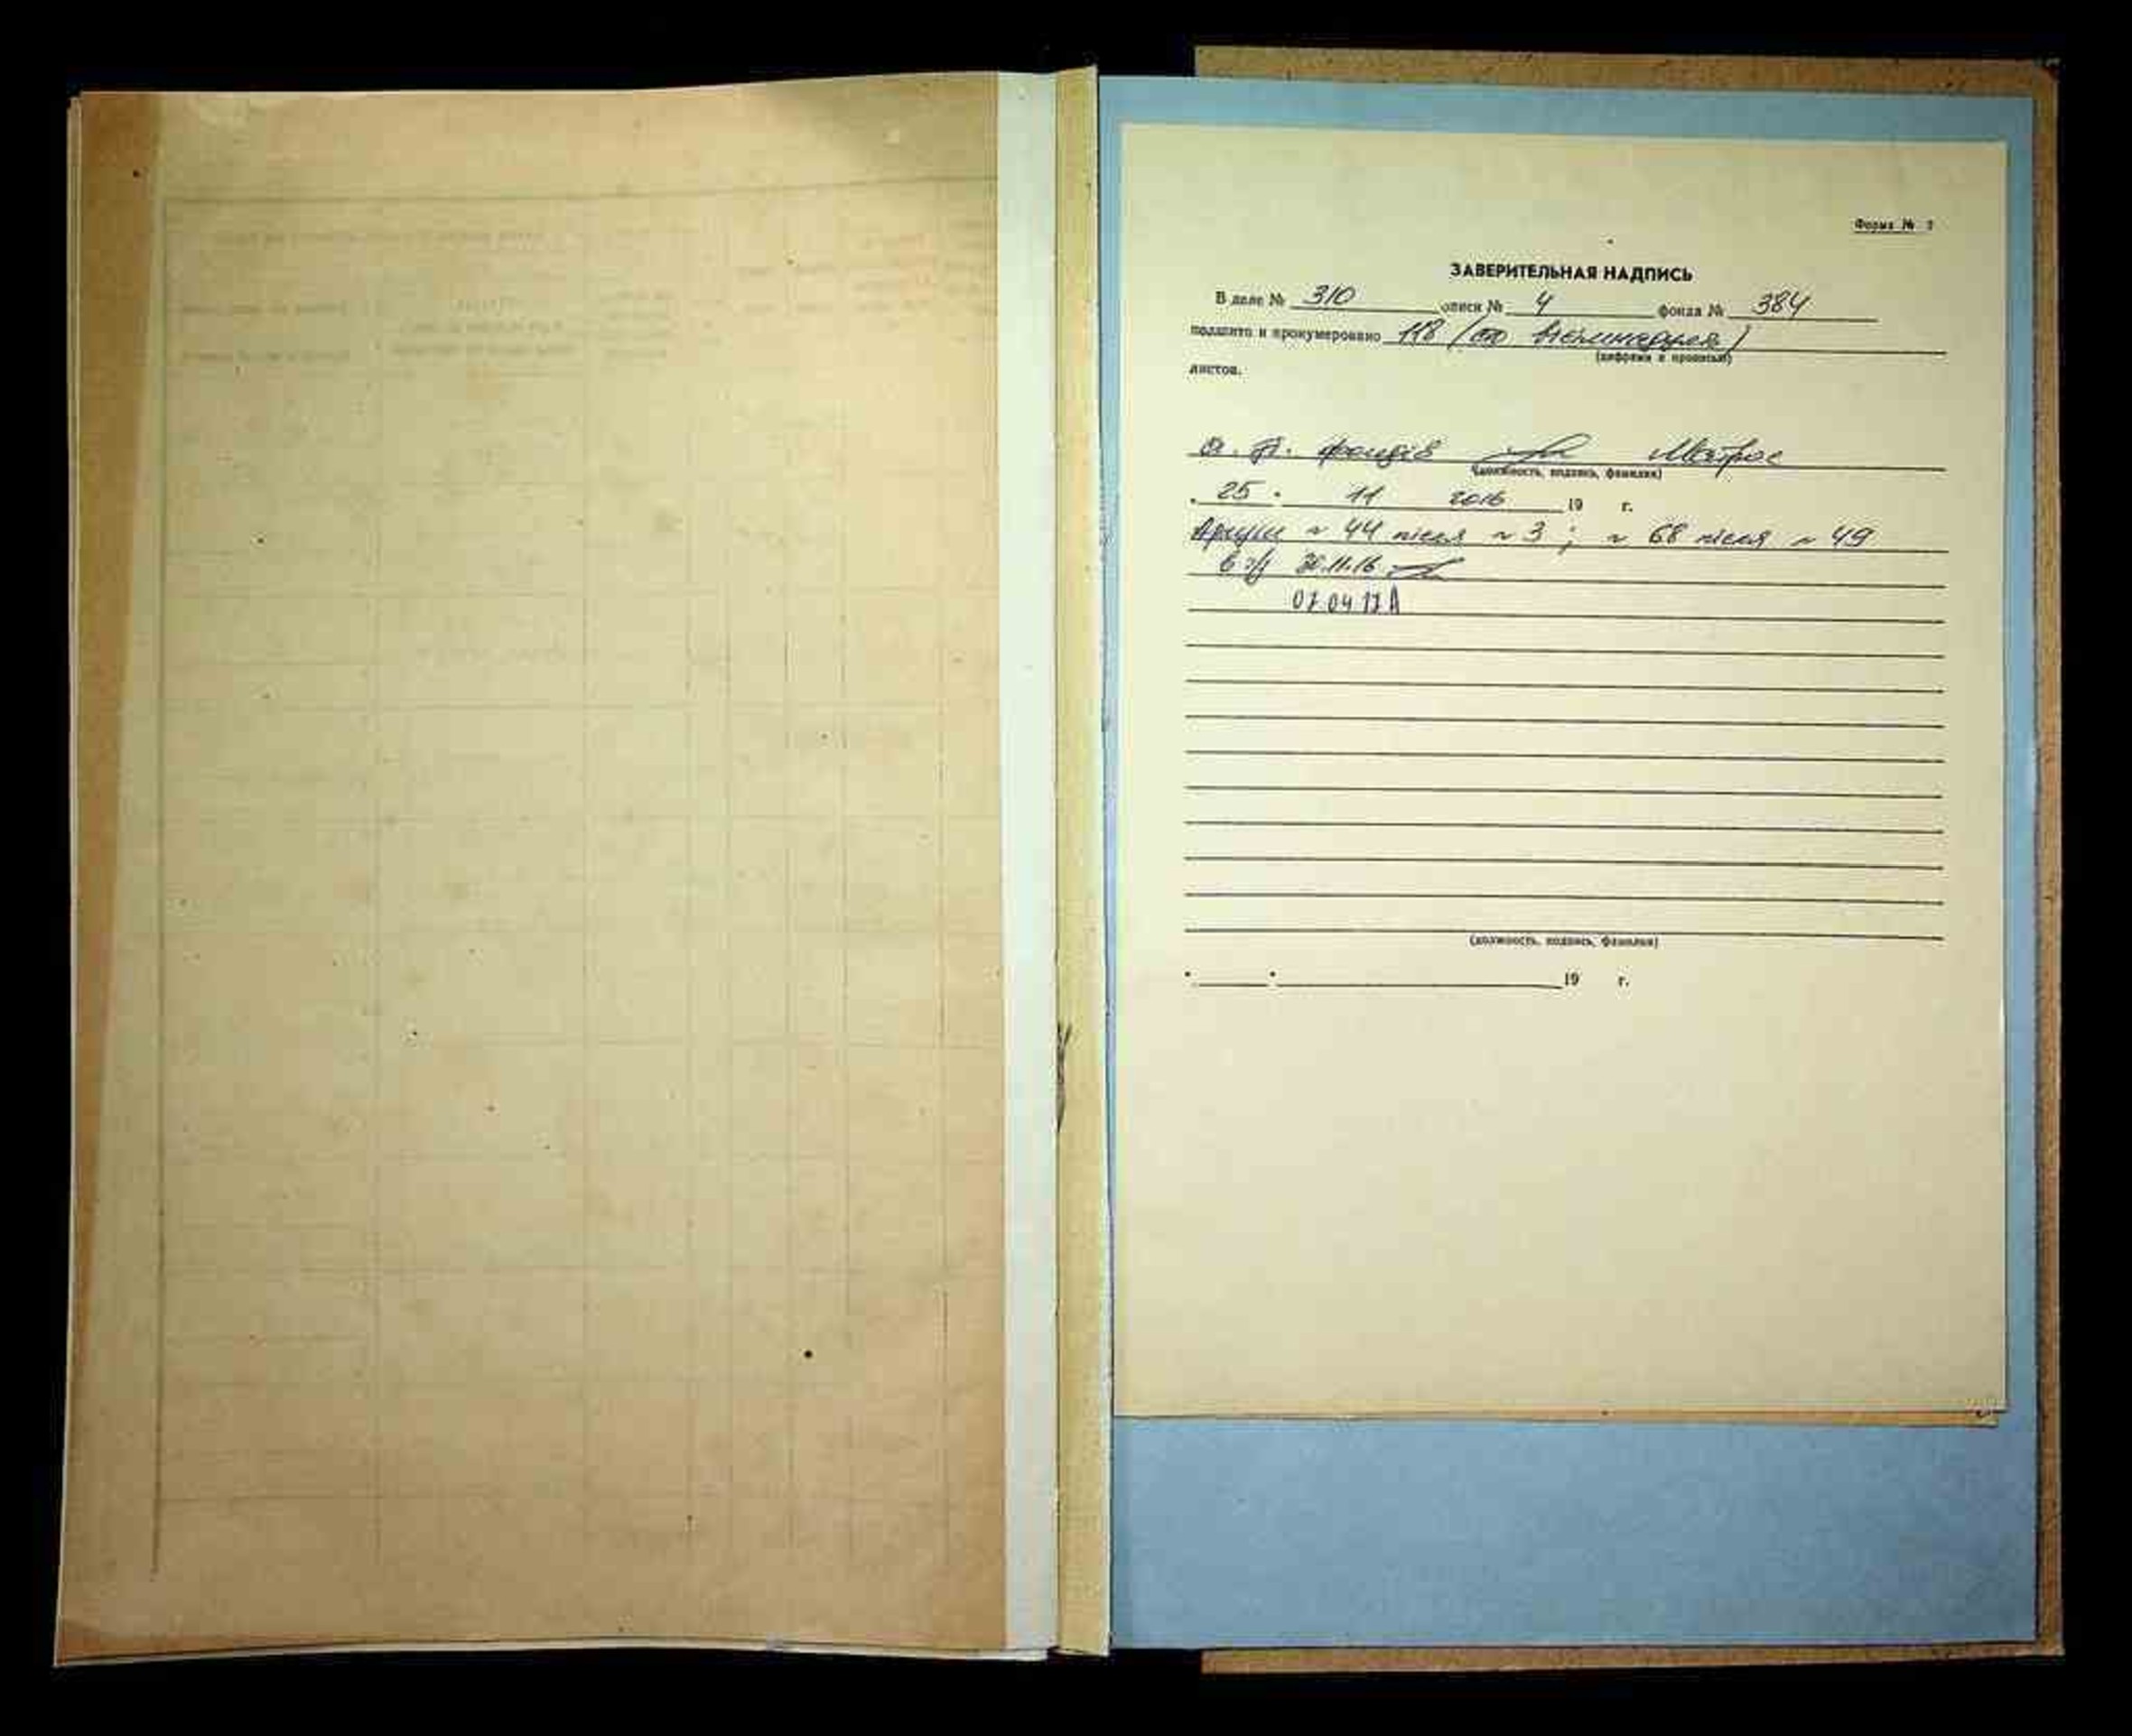 Форма №
ЗАВЕРИТЕЛЬНАЯ НАДПИСЬ
В деле № 310 описи № 4 фонда № 384
подшито и пронумеровано 118 (сто вісімнадцять)
(цифрами и прописью)
листов.
фондів Матрос
(должность, подпись, фамилия)
25 11 2016 19 г.
Аркуш ~ 44 після ~ 3 ; ~ 68 після ~ 49
30.11.16
07 04 17
(должность, подпись, фамилия)
19 г.